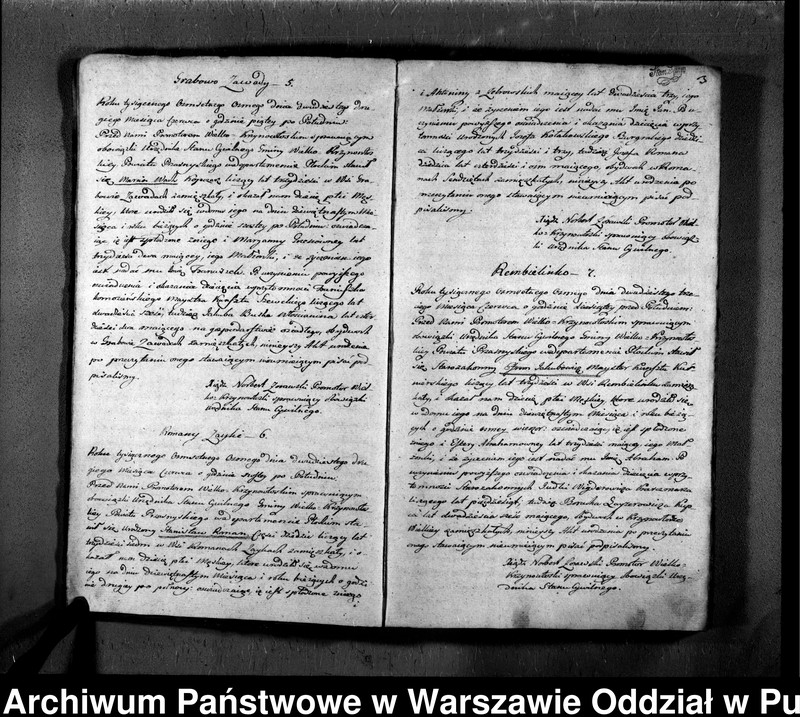 Grabowo Zawady — 5.
Roku tysiącznego Osmsetnego Osmego dnia dwudziestego dru-
giego Miesiąca Czerwca o godzinie piątey po Południu:
Przed Nami Promotorem Wielko-Krzynowłoskim sprawującym
obowiązki Urzędnika Stanu Cywilnego Gminy Wielko Krzynowłos-
kiey Powiatu Przasnyskiego w departamencie Płockim stawił
się Marcin liczący lat trzydzieści w Wsi Gra-
bowie Zawadach zamieszkały, i okazał nam dziecię płci Męz-
kiey, które urodziło się w domu iego na dniu dziewiętnastym Mie-
siąca i roku bieżących o godzinie szóstey po Południu: oświadcza-
iąc iż iest spłodzone z niego i Maryanny lat
trzydzieści dwa maiącey, iego Małżonki, i że życzeniem iego
iest nadać mu Imię Franciszek. Po uczynieniu powyższego
oświadczenia i okazania dziecięcia w przytomności Franciszka
Komorowskiego Maystra Kunsztu Szewskiego liczącego lat
dwadzieścia sześć, tudzież Jakuba Włościanina lat czter-
dzieści dwa maiącego na gospodarstwie osiadłego, obydwóch
w Grabowie Zawadach zamieszkałych, ninieyszy Akt urodzenia
po przeczytaniu onego stawaiącym nieumieiącym pisać pod-
pisaliśmy.
Xiądz Norbert Promotor Wiel-
ko-Krzynowłoski sprawuiący Obowiązki
Urzędnika Stanu Cywilnego.
Romany Zayki — 6.
Roku tysiącznego Osmsetnego Osmego dnia dwudziestego dru-
giego Miesiąca Czerwca o godzinie szóstey po Południu.
Przed Nami Promotorem Wielko Krzynowłoskim sprawuiącym
obowiązki Urzędnika Stanu Cywilnego Gminy Wielko Krzynowłos-
kiey Powiatu Przasnyskiego w departamencie Płockim sta-
wił się Urodzony Stanisław Roman Części Dziedzic liczący lat
trzydzieści siedm w Wsi Romanach Zaykach zamieszkały, i o-
kazał nam dziecię płci Męzkiey, które urodziło się w domu
iego na dniu dziewiętnastym Miesiąca i roku bieżących o godzi-
nie drugiey po północy: oświadczaiąc iż iest spłodzone z niego
3
i Antoniny z maiącey lat dwadzieścia trzy, iego
Małżonki, i że życzeniem iego iest nadać mu Imię Jan. Po u-
czynieniu powyższego oświadczenia i okazania dziecięcia w przy-
tomności Urodzonych Jozefa dziedzi-
ca liczącego lat trzydzieści i trzy, tudzież Jozefa Romana
dziedzica lat czterdzieści i ośm maiącego, obydwóch w Roma-
nach zamieszkałych, ninieyszy Akt urodzenia po
przeczytaniu onego stawaiącym nieumieiącym pisać pod-
pisaliśmy.
Xiądz Norbert Promotor Wiel-
ko-Krzynowłoski sprawuiący obowiąz-
ki Urzędnika Stanu Cywilnego.
Rembielinko — 7.
Roku tysiącznego Osmsetnego Osmego dnia dwudziestego trze-
ciego Miesiąca Czerwca o godzinie dziesiątey przed Południem:
Przed Nami Promotorem Wielko-Krzynowłoskim sprawuiącym
obowiązki Urzędnika Stanu Cywilnego Gminy Wielko-Krzynowłos-
kiey Powiatu Przasnyskiego w departamencie Płockim stawił
się Starozakonny Jakubowicz, Mayster Kunsztu Kuś-
nierskiego liczący lat trzydzieści w Wsi Rembielinku zamiesz-
kały, i okazał nam dziecię płci Męzkiey, które urodziło się
w domu iego na dniu dziewiętnastym Miesiąca i roku bieżą-
cych o godzinie osmey wieczor: oświadczaiąc iż iest spłodzone
z niego i Estery Abrahamowney lat trzydzieści maiącey iego Mał-
żonki, i że życzeniem iego iest nadać mu Imię Abraham. Po
uczynieniu powyższego oświadczenia i okazania dziecięcia w przy-
tomności Starozakonnych Judki Karczmarza
liczącego lat pięćdziesiąt, tudzież Leyzorowicza
lat dwadzieścia sześć maiącego, obydwóch w Krzynowłodze
Wielkiey zamieszkałych, ninieyszy Akt urodzenia po przeczytaniu
onego stawaiącym nieumieiącym pisać podpisaliśmy.
Xiądz Norbert Promotor Wielko-
Krzynowłoski sprawuiący Obowiązki Urzę-
dnika Stanu Cywilnego.
Archiwum Państwowe w Warszawie Oddział w Pu